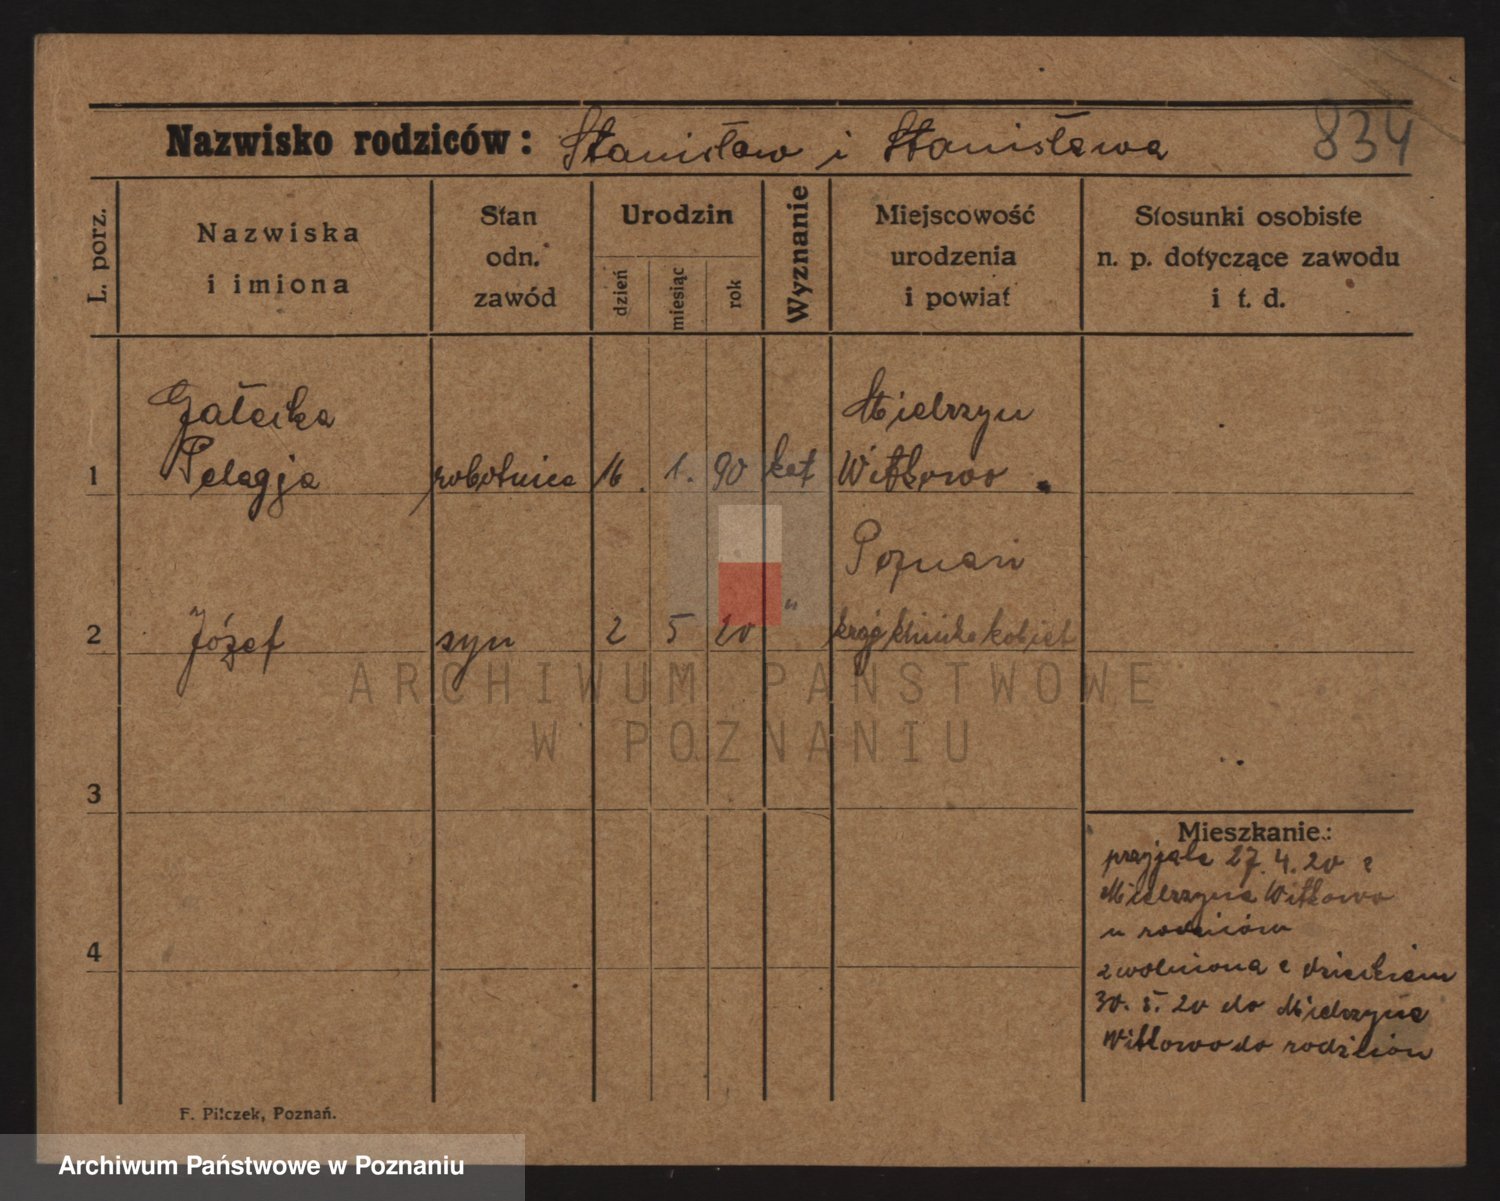 834
Nazwisko rodziców: Stanisław i Stanisława
L. porz.
Nazwiska
i imiona
Stan
odn.
zawód
Urodzin
dzień
miesiąc
rok
Wyznanie
Miejscowość
urodzenia
i powiat
Stosunki osobiste
n. p. dotyczące zawodu
i t. d.
Gałecka Mielrzyn
1 Pelagja robotnica 16. 1. 90 kat Witkowo
Poznań
2 Józef syn 2 5 20 " klinika kobiet
3
4
Mieszkanie:
przyjęta 27.4.20 z
Mielrzyna Witkowo
u rodziców
zwolniona z dzieckiem
30.5.20 do Mielrzyna
Witkowo do rodziców
F. Pilczek, Poznań.
ARCHIWUM PAŃSTWOWE
W POZNANIU
Archiwum Państwowe w Poznaniu